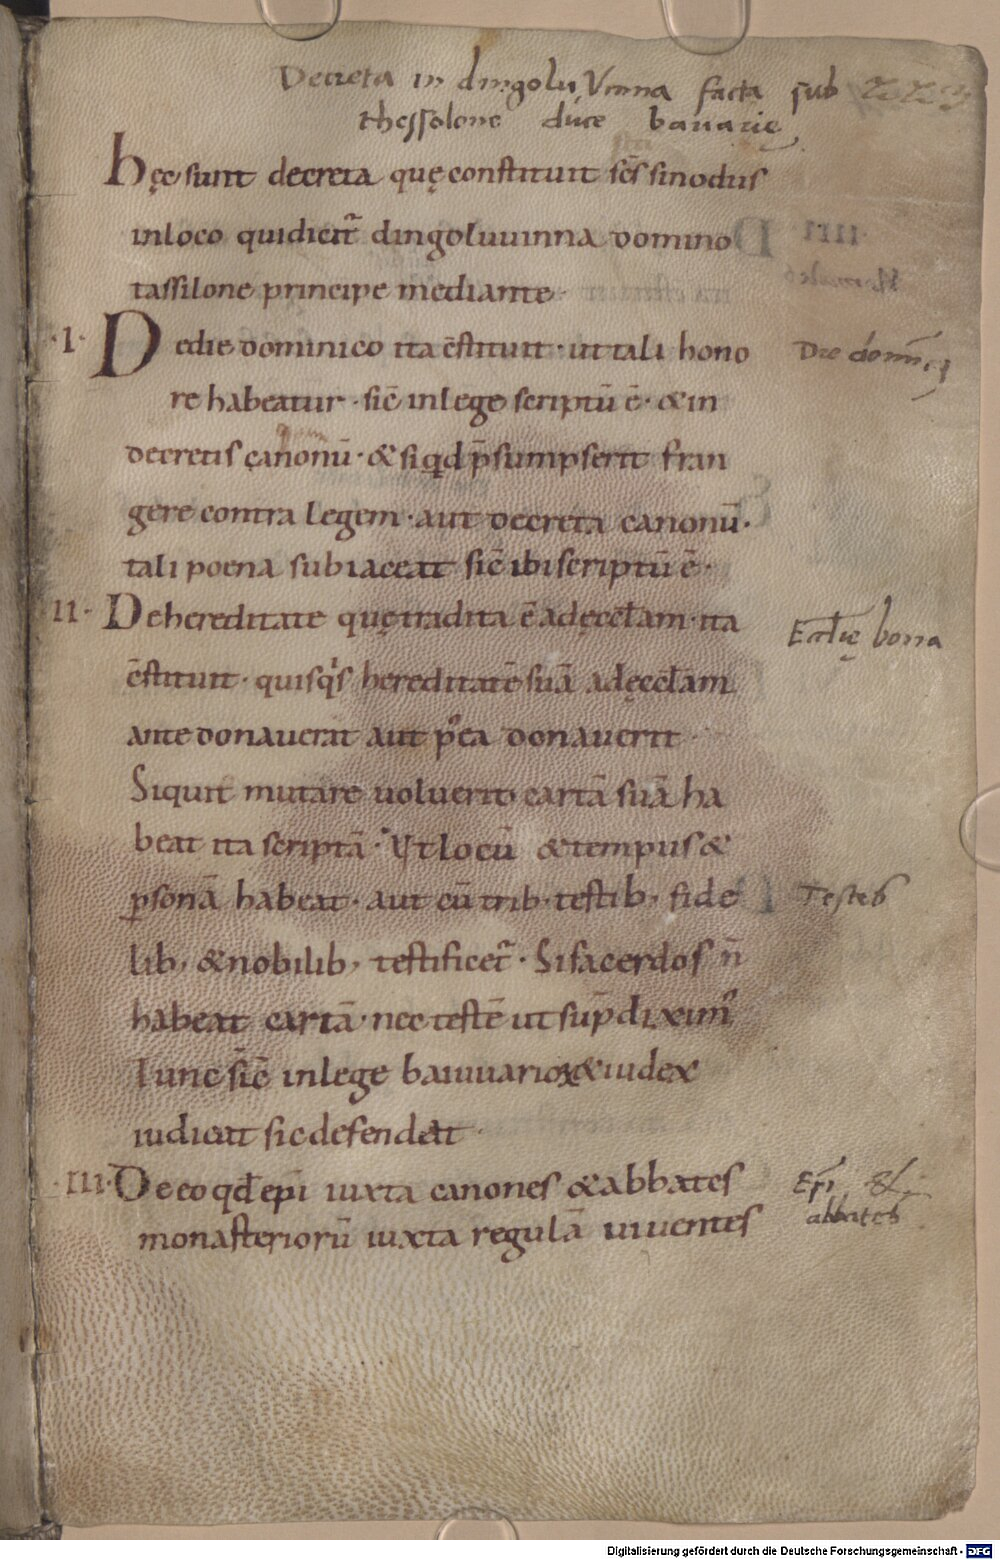 Decreta in dingolu Vinna facta sub
thessolone duce bauarię
hęc sunt decreta quę constituit scs̄ sinodus
inloco quidicit̄ dingoluuinna domino
tassilone principe mediante
·I· Dedie dominico ita c̄stituit· ut tali hono
Die domnici
re habeatur· sic̄ inlege scriptū ē· & in
decretis canonū· & siqd p̄sumpserit fran
gere contra legem· aut decreta canonū·
tali poena subiaceat sic̄ ibi scriptū ē·
II· De hereditate quę tradita ē adęccl̄am· ita
Eccl̄ię bona
c̄stituit· quisqs hereditatē suā adęccl̄am
ante donauerat aut p'ea donauerit
Siquit mutare uoluerit cartā suā ha
beat ita scriptā· Vt locū & tempus &
p̱sonā habeat· aut cū trib· testib; fide
Testes
lib; & nobilib; testificet̄· Si sacerdos n̄
habeat cartā· nec testē ut sup̄ dixim'
Tunc sic̄ inlege baiuuarioꝝ & iudex
iudicat sic defendat
·III· De eo qd ep̄i iuxta canones & abbates
Ep̄i &
abbates
monasteriorū iuxta regulā uiuentes
Digitalisierung gefördert durch die Deutsche Forschungsgemeinschaft - DFG